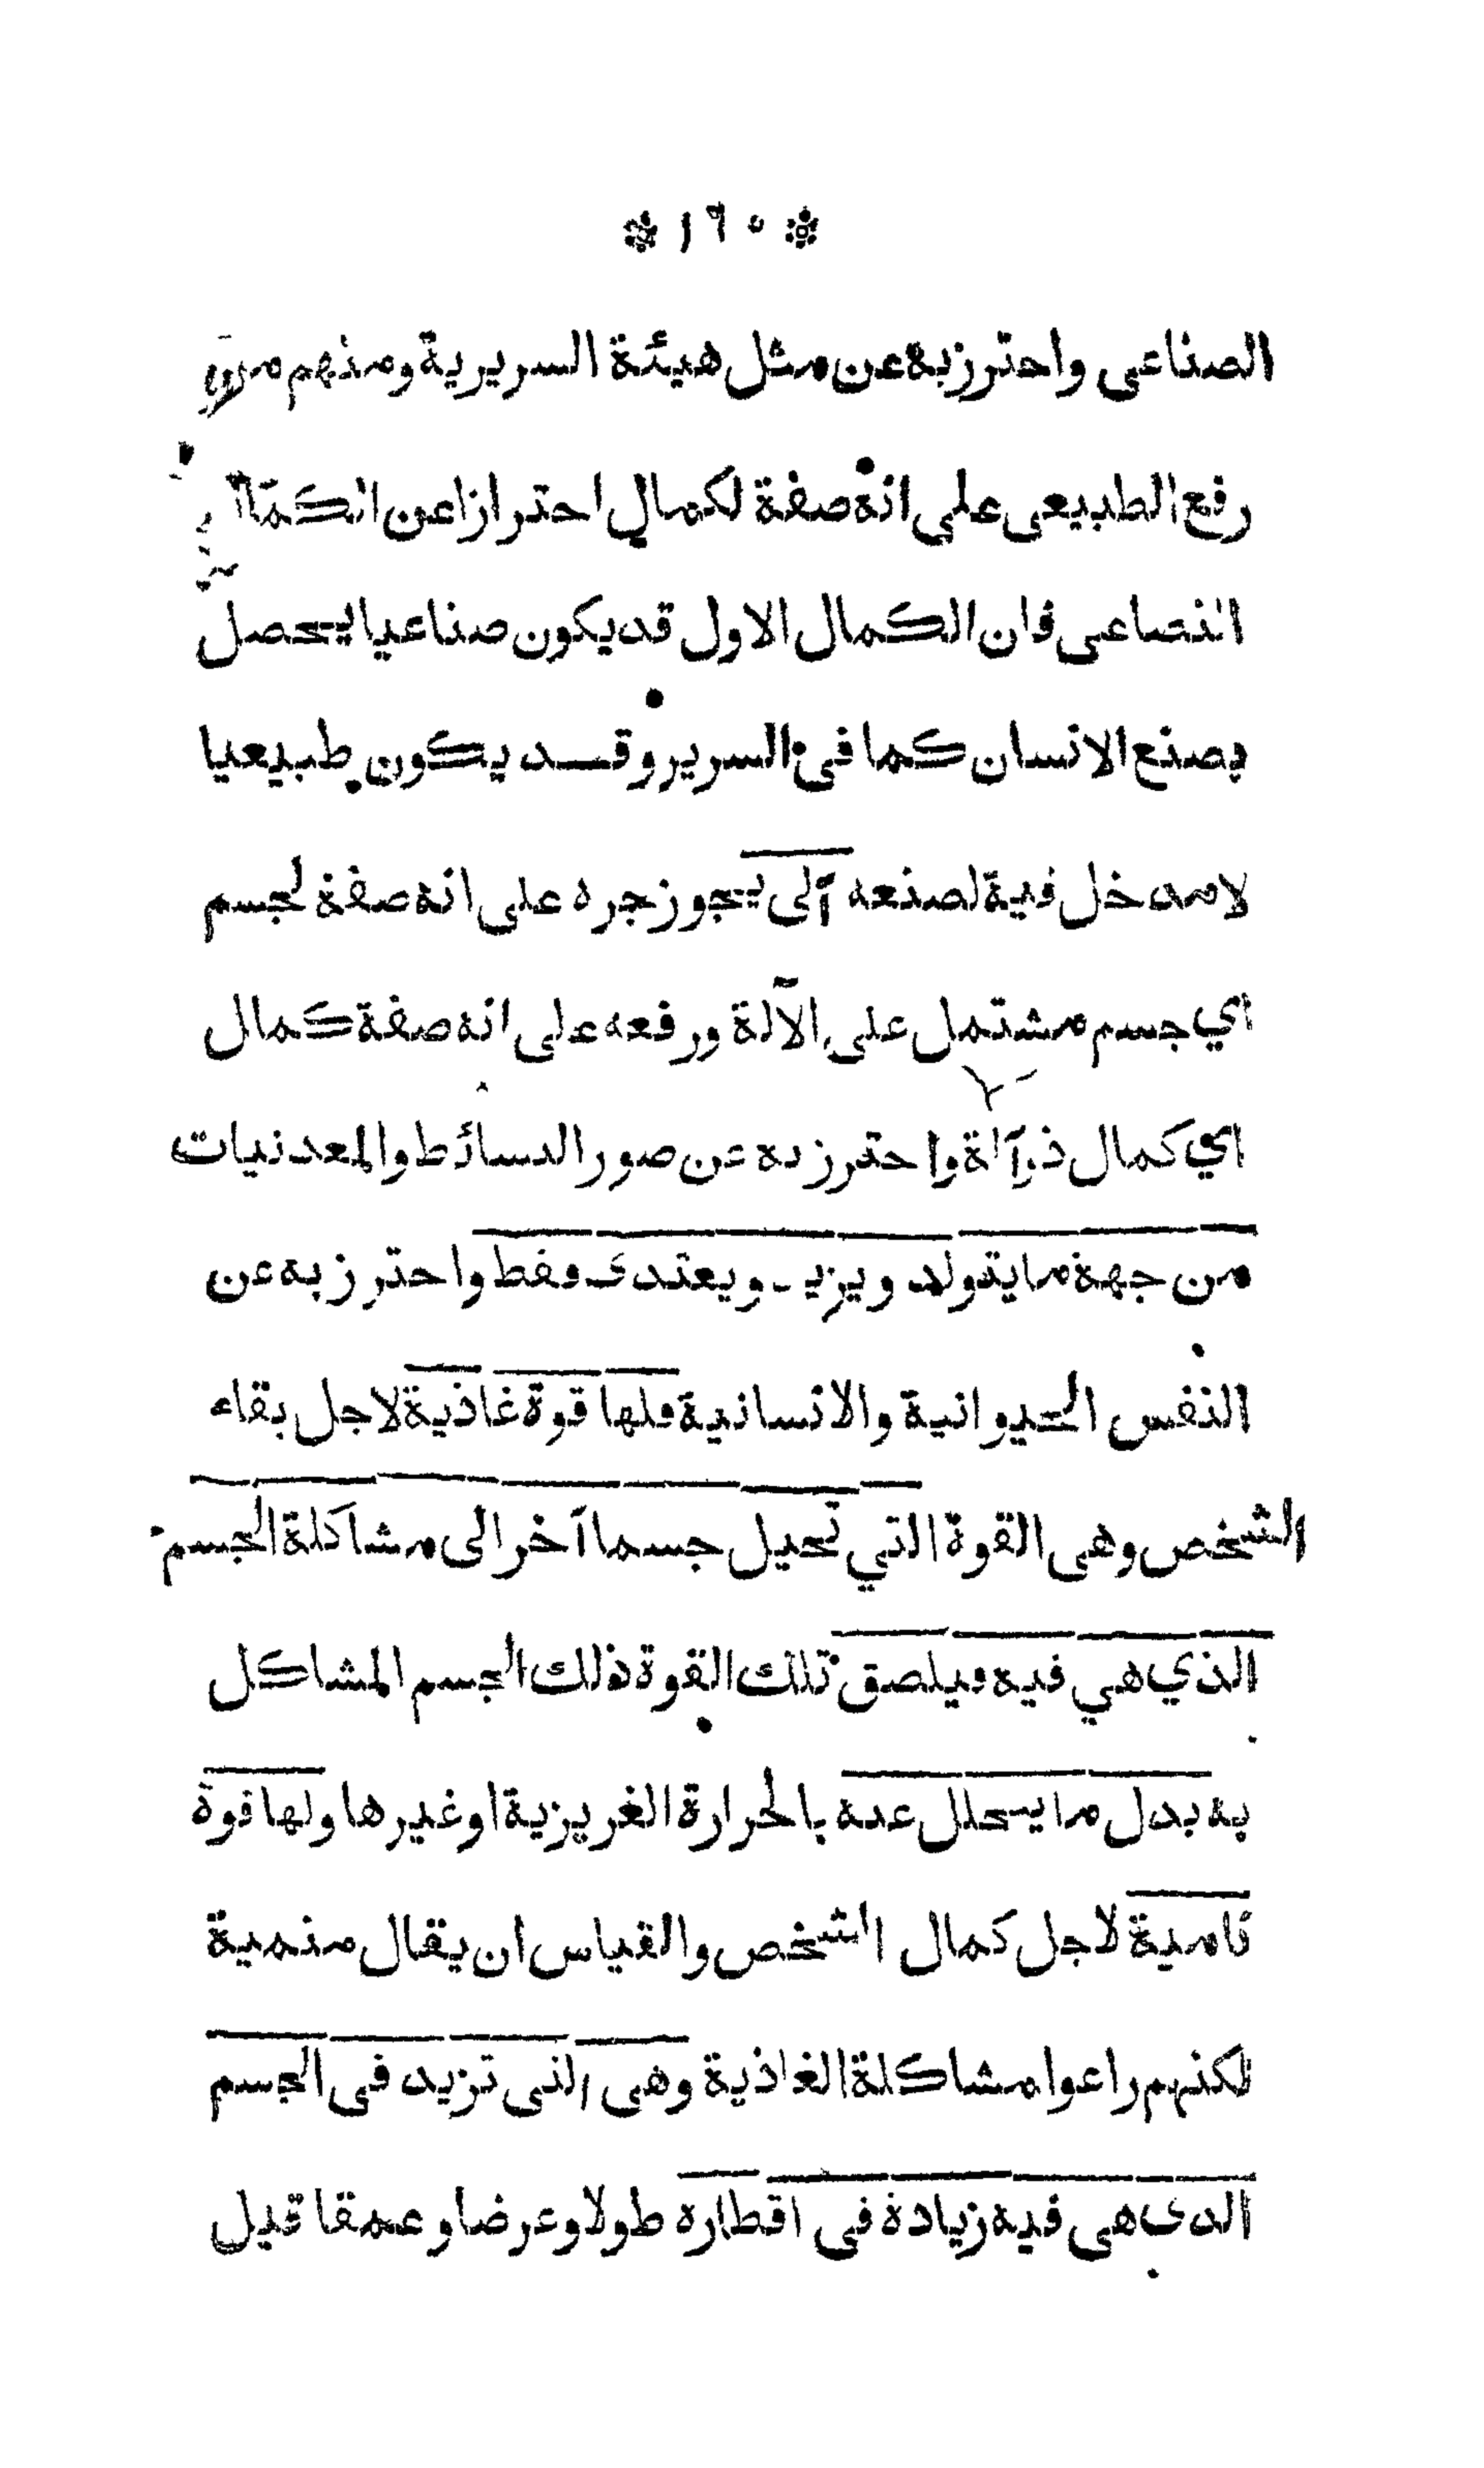 * ١٦٥ *
الصناعى واحترز به عن مثل هيئة السريرية ومنهم من
رفع الطبيعى على انه صفة لكمال احترازا عن الكمال
الصناعى فان الكمال الاول قد يكون صناعيا يحصل
بصنع الانسان كما فى السرير وقد يكون طبيعيا
لا مدخل فيه لصنعه آلى يجوز جره على انه صفة لجسم
اي جسم مشتمل على الآلة ورفعه على انه صفة كمال
اي كمال ذو آلة واحترز به عن صور البسائط والمعدنيات
من جهة ما يتولد ويزيد ويغتذى فقط واحترز به عن
النفس الحيوانية والانسانية فلها قوة غاذية لاجل بقاء
الشخص وهى القوة التي تحيل جسما آخر الى مشاكلة الجسم
الذي هي فيه فيلصق تلك القوة ذلك الجسم المشاكل
به بدل ما يتحلل عنه بالحرارة الغريزية او غيرها ولها قوة
نامية لاجل كمال الشخص والقياس ان يقال منمية
لكنهم راعوا مشاكلة الغاذية وهى التى تزيد فى الجسم
الذى هى فيه زيادة فى اقطاره طولا وعرضا وعمقا قيل